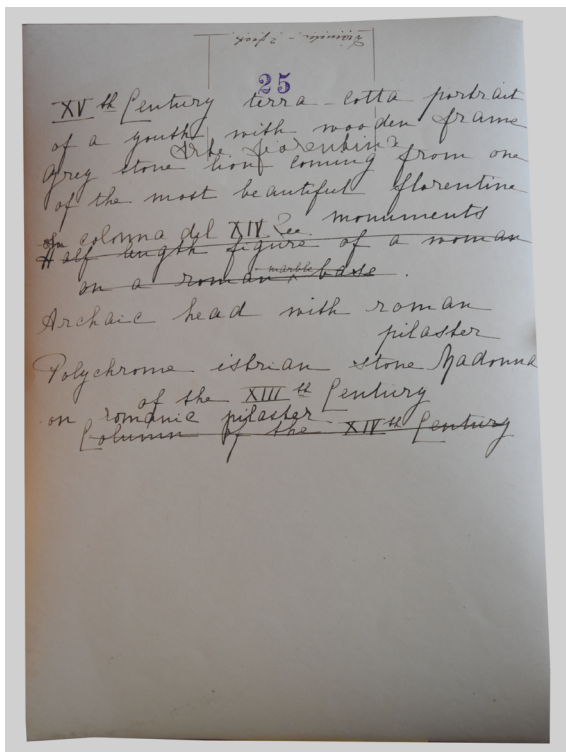 25
XVth Century terra-cotta portrait
of a youth with wooden frame
Grey stone lion coming from one
of the most beautiful florentine
colonna del XIV Sec. monuments
Half length figure of a woman
on a roman marble base.
Archaic head with roman
pilaster
Polychrome istrian stone Madonna
of the XIIIth Century
on romanic pilaster
Column of the XIVth Century